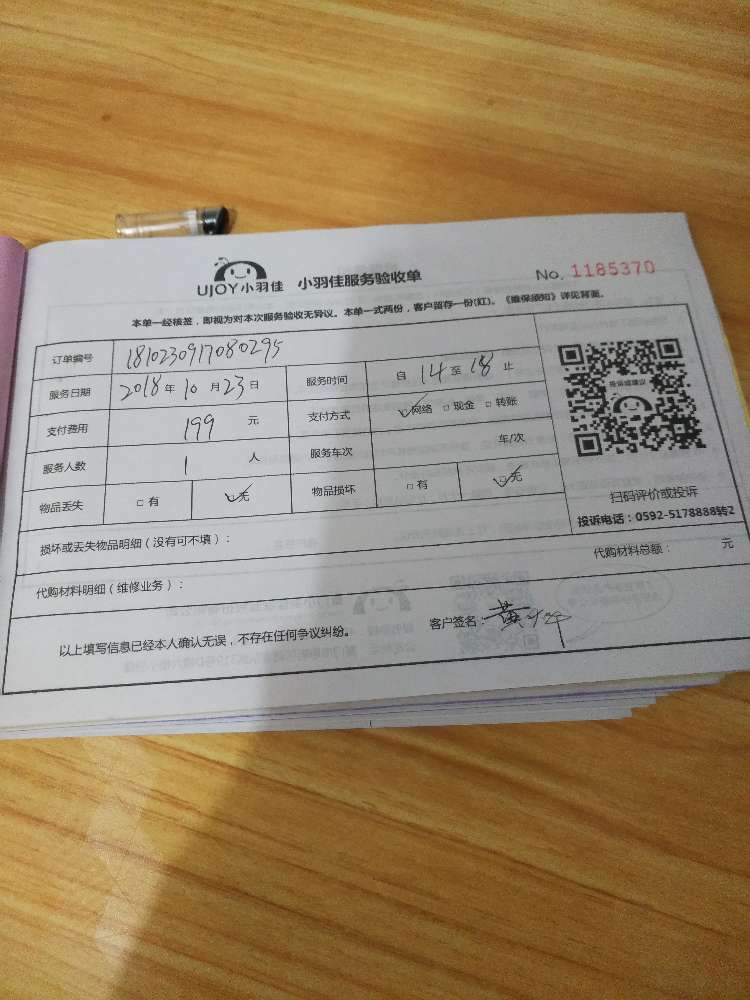 UJOY小羽佳 小羽佳服务验收单 No. 1185370
本单一经核签，即视为对本次服务验收无异议。本单一式两份，客户留存一份(红)。《维保须知》详见背面。
订单编号 181023091708０295
服务日期 2018年10月23日 服务时间 自 14 至 18 止
支付费用 199 元 支付方式 ☑网络 □现金 □转账
服务人数 1 人 服务车次 车/次
物品丢失 □有 ☑无 物品损坏 □有 ☑无
投诉或建议
扫码评价或投诉
投诉电话：0592-5178888转2
损坏或丢失物品明细（没有可不填）：
代购材料明细（维修业务）： 代购材料总额： 元
以上填写信息已经本人确认无误，不存在任何争议纠纷。 客户签名：黄